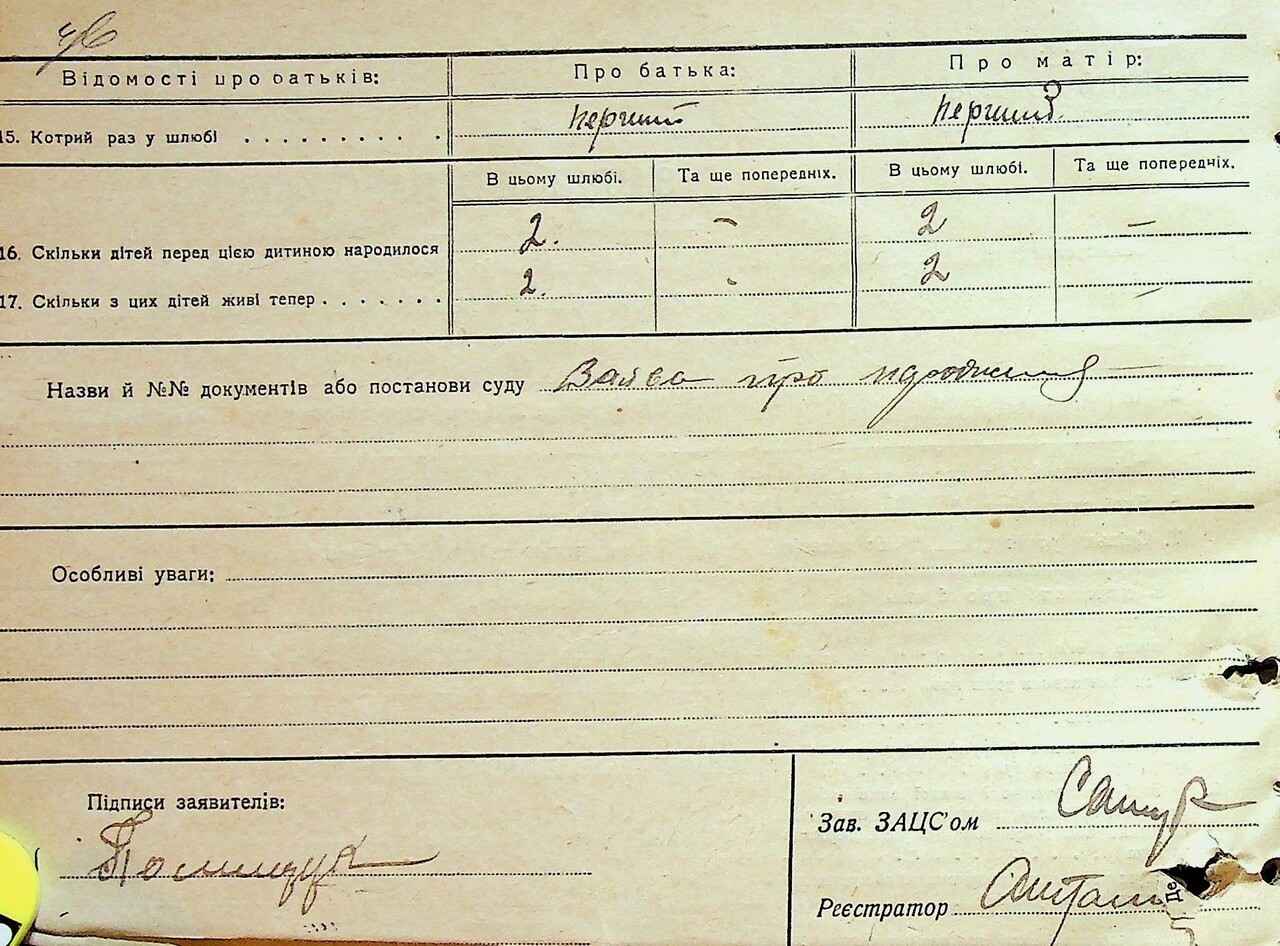 Відомості про батьків: Про батька: Про матір:
15. Котрий раз у шлюбі . . . . . . . . . . перший перший
В цьому шлюбі. Та ще попередніх. В цьому шлюбі. Та ще попередніх.
16. Скільки дітей перед цією дитиною народилося 2. - 2 -
17. Скільки з цих дітей живі тепер . . . . . . . 2. - 2 -
Назви й №№ документів або постанови суду Заява про народження
Особливі уваги:
Підписи заявителів:
Зав. ЗАЦС'ом
Реєстратор